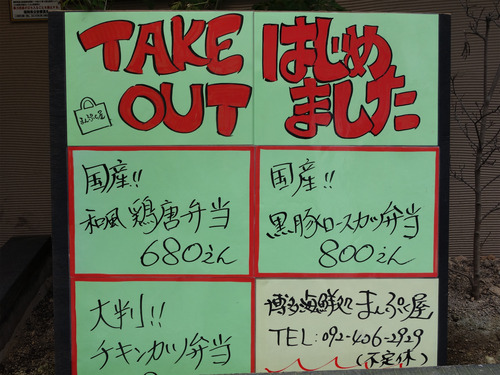 TAKE OUT
はじめました
まんぷく屋
国産!!
和風鶏唐弁当
680えん
国産!!
黒豚ロースカツ弁当
800えん
大判!!
チキンカツ弁当
博多海鮮処まんぷく屋
TEL:092-406-2929
(不定休)